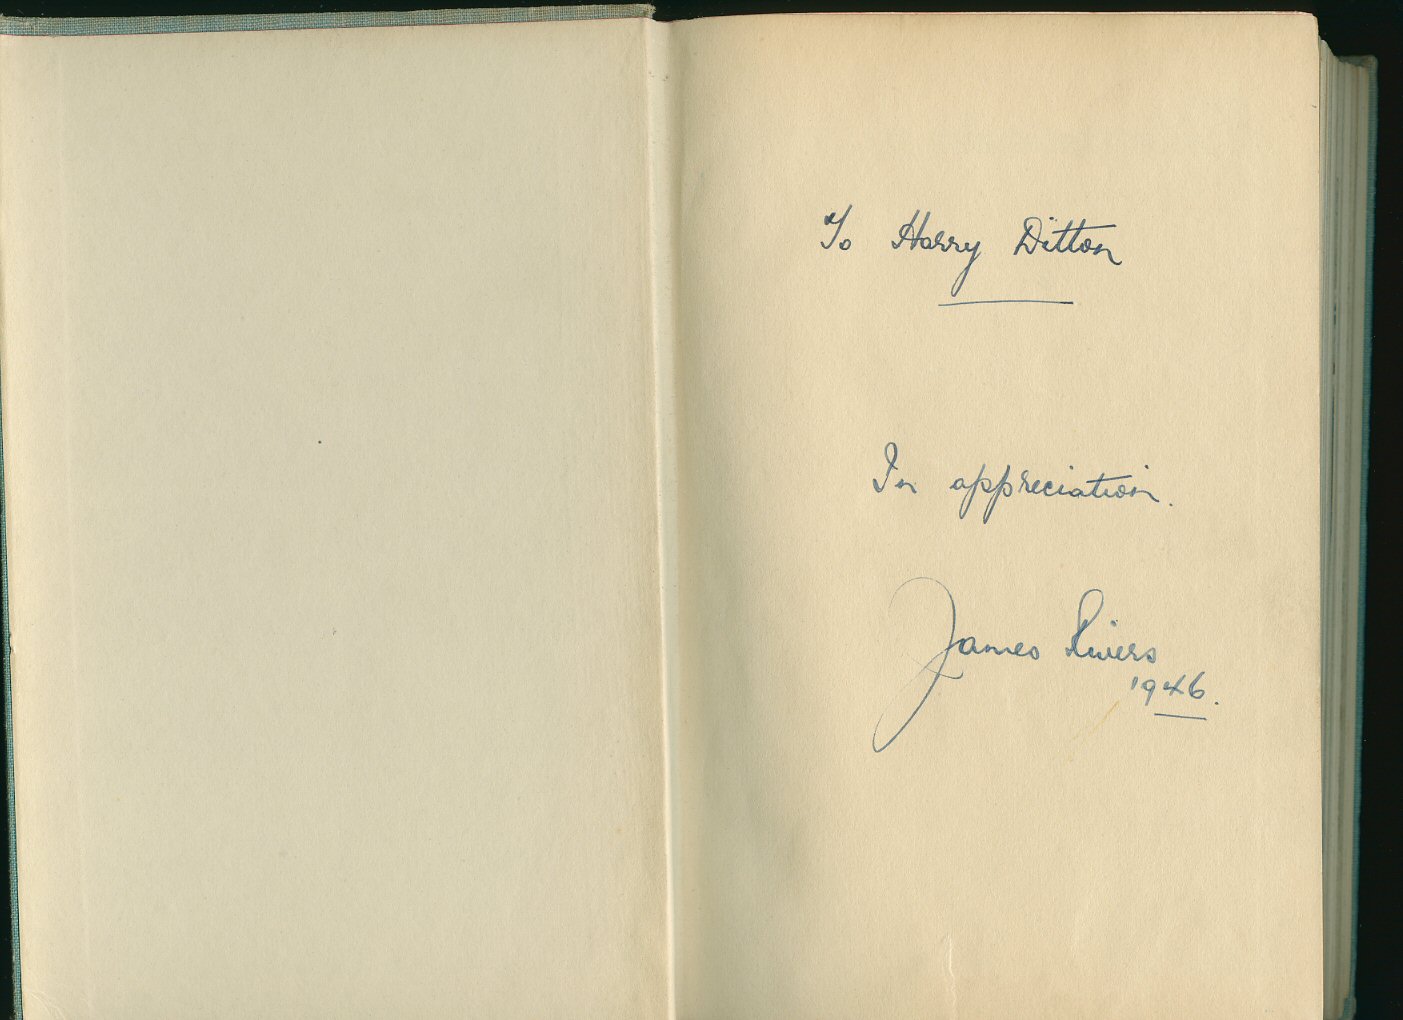 To Harry Ditton
In appreciation.
James Rivers
1946.